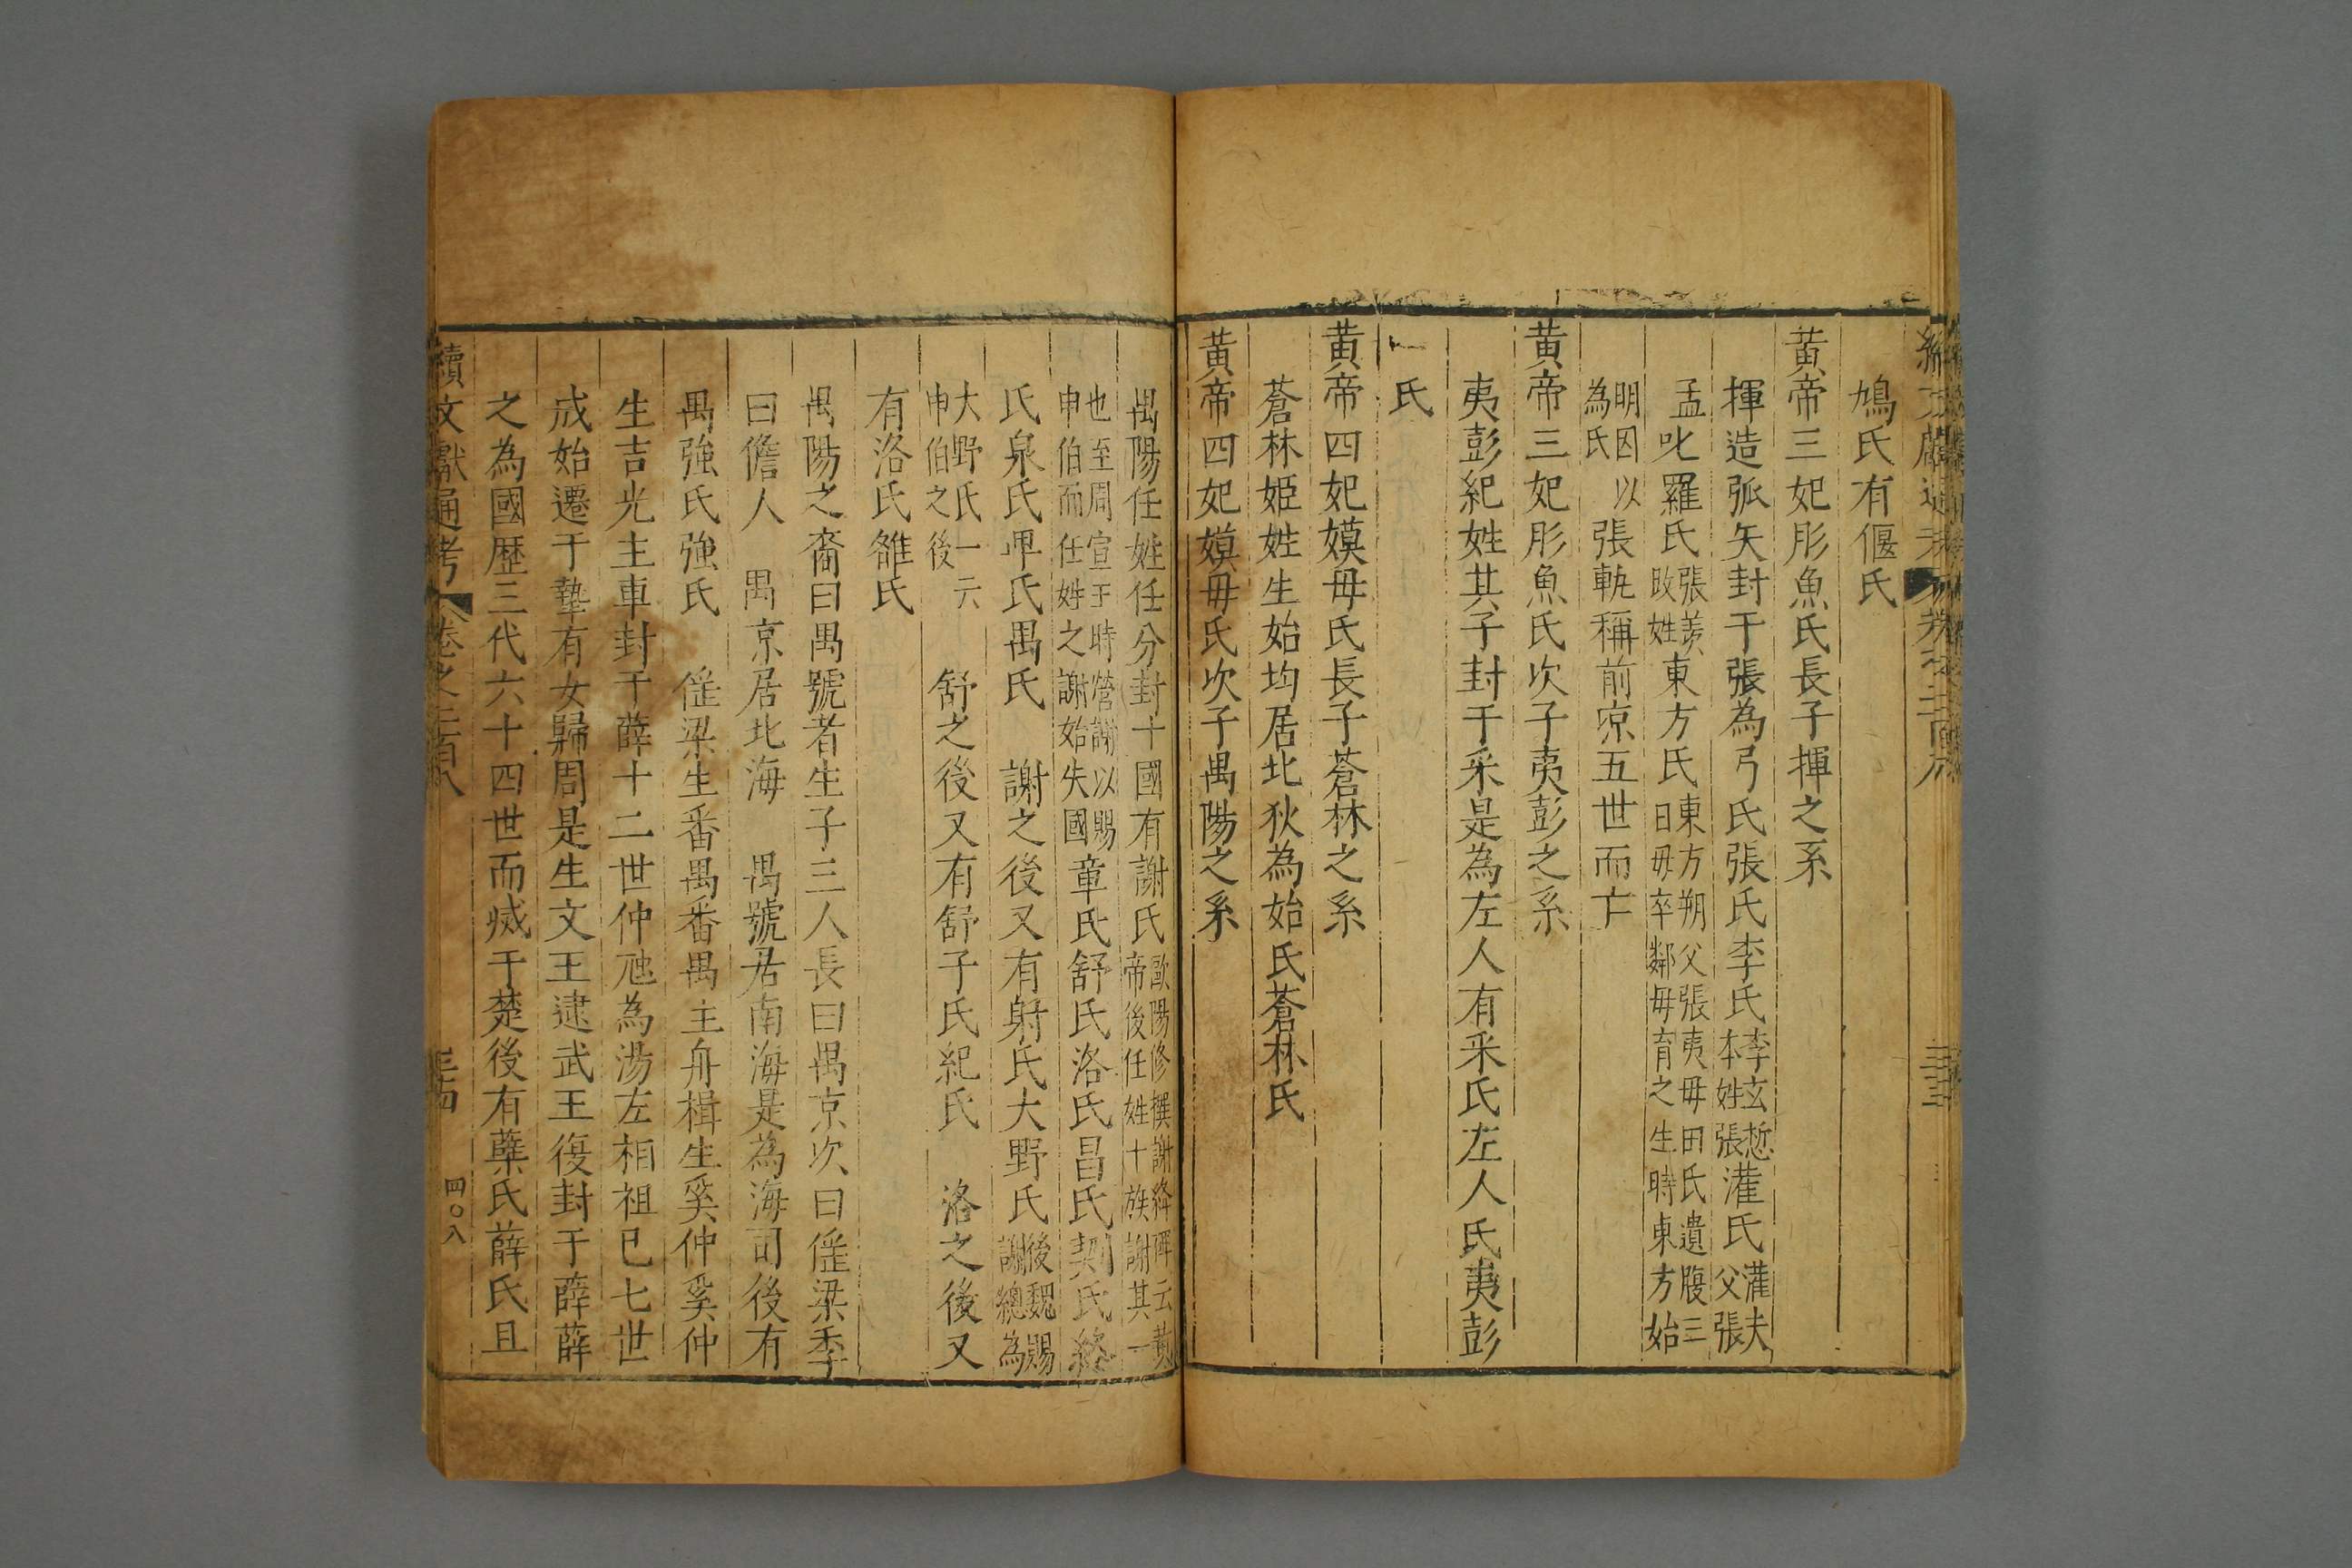 鳩氏有偃氏
黃帝三妃彤魚氏長子揮之系
揮造弧矢封于張為弓氏張氏李氏李玄悊本姓張灌氏灌夫父張
孟叱羅氏張羨改姓東方氏東方朔父張夷母田氏遺腹三日母卒鄰母育之生時東方始
明因以為氏張軌稱前凉五世而亡
黃帝三妃彤魚氏次子夷彭之系
夷彭紀姓其子封于采是為左人有采氏左人氏夷彭
氏
黃帝四妃嫫母氏長子蒼林之系
蒼林姬姓生始均居北狄為始氏蒼林氏
黃帝四妃嫫母氏次子禺陽之系
禺陽任姓任分封十國有謝氏歐陽修撰謝絳碑云黃帝後任姓十族謝其一
也至周宣王時營謝以賜申伯而任姓之謝始失國章氏舒氏洛氏昌氏契氏終
氏泉氏卑氏禺氏 謝之後又有射氏大野氏後魏賜謝總為
大野氏一云申伯之後 舒之後又有舒子氏紀氏 洛之後又
有洛氏雒氏
禺陽之裔曰禺號者生子三人長曰禺京次曰傜梁季
曰儋人 禺京居北海 禺號居南海是為海司後有
禺強氏強氏 傜梁生番禺番禺主舟楫生奚仲奚仲
生吉光主車封于薛十二世仲虺為湯左相祖已七世
成始遷于摯有女歸周是生文王逮武王復封于薛薛
之為國歷三代六十四世而滅于楚後有蘖氏薛氏且
續文獻通考 卷之二百八 三十四 四〇八